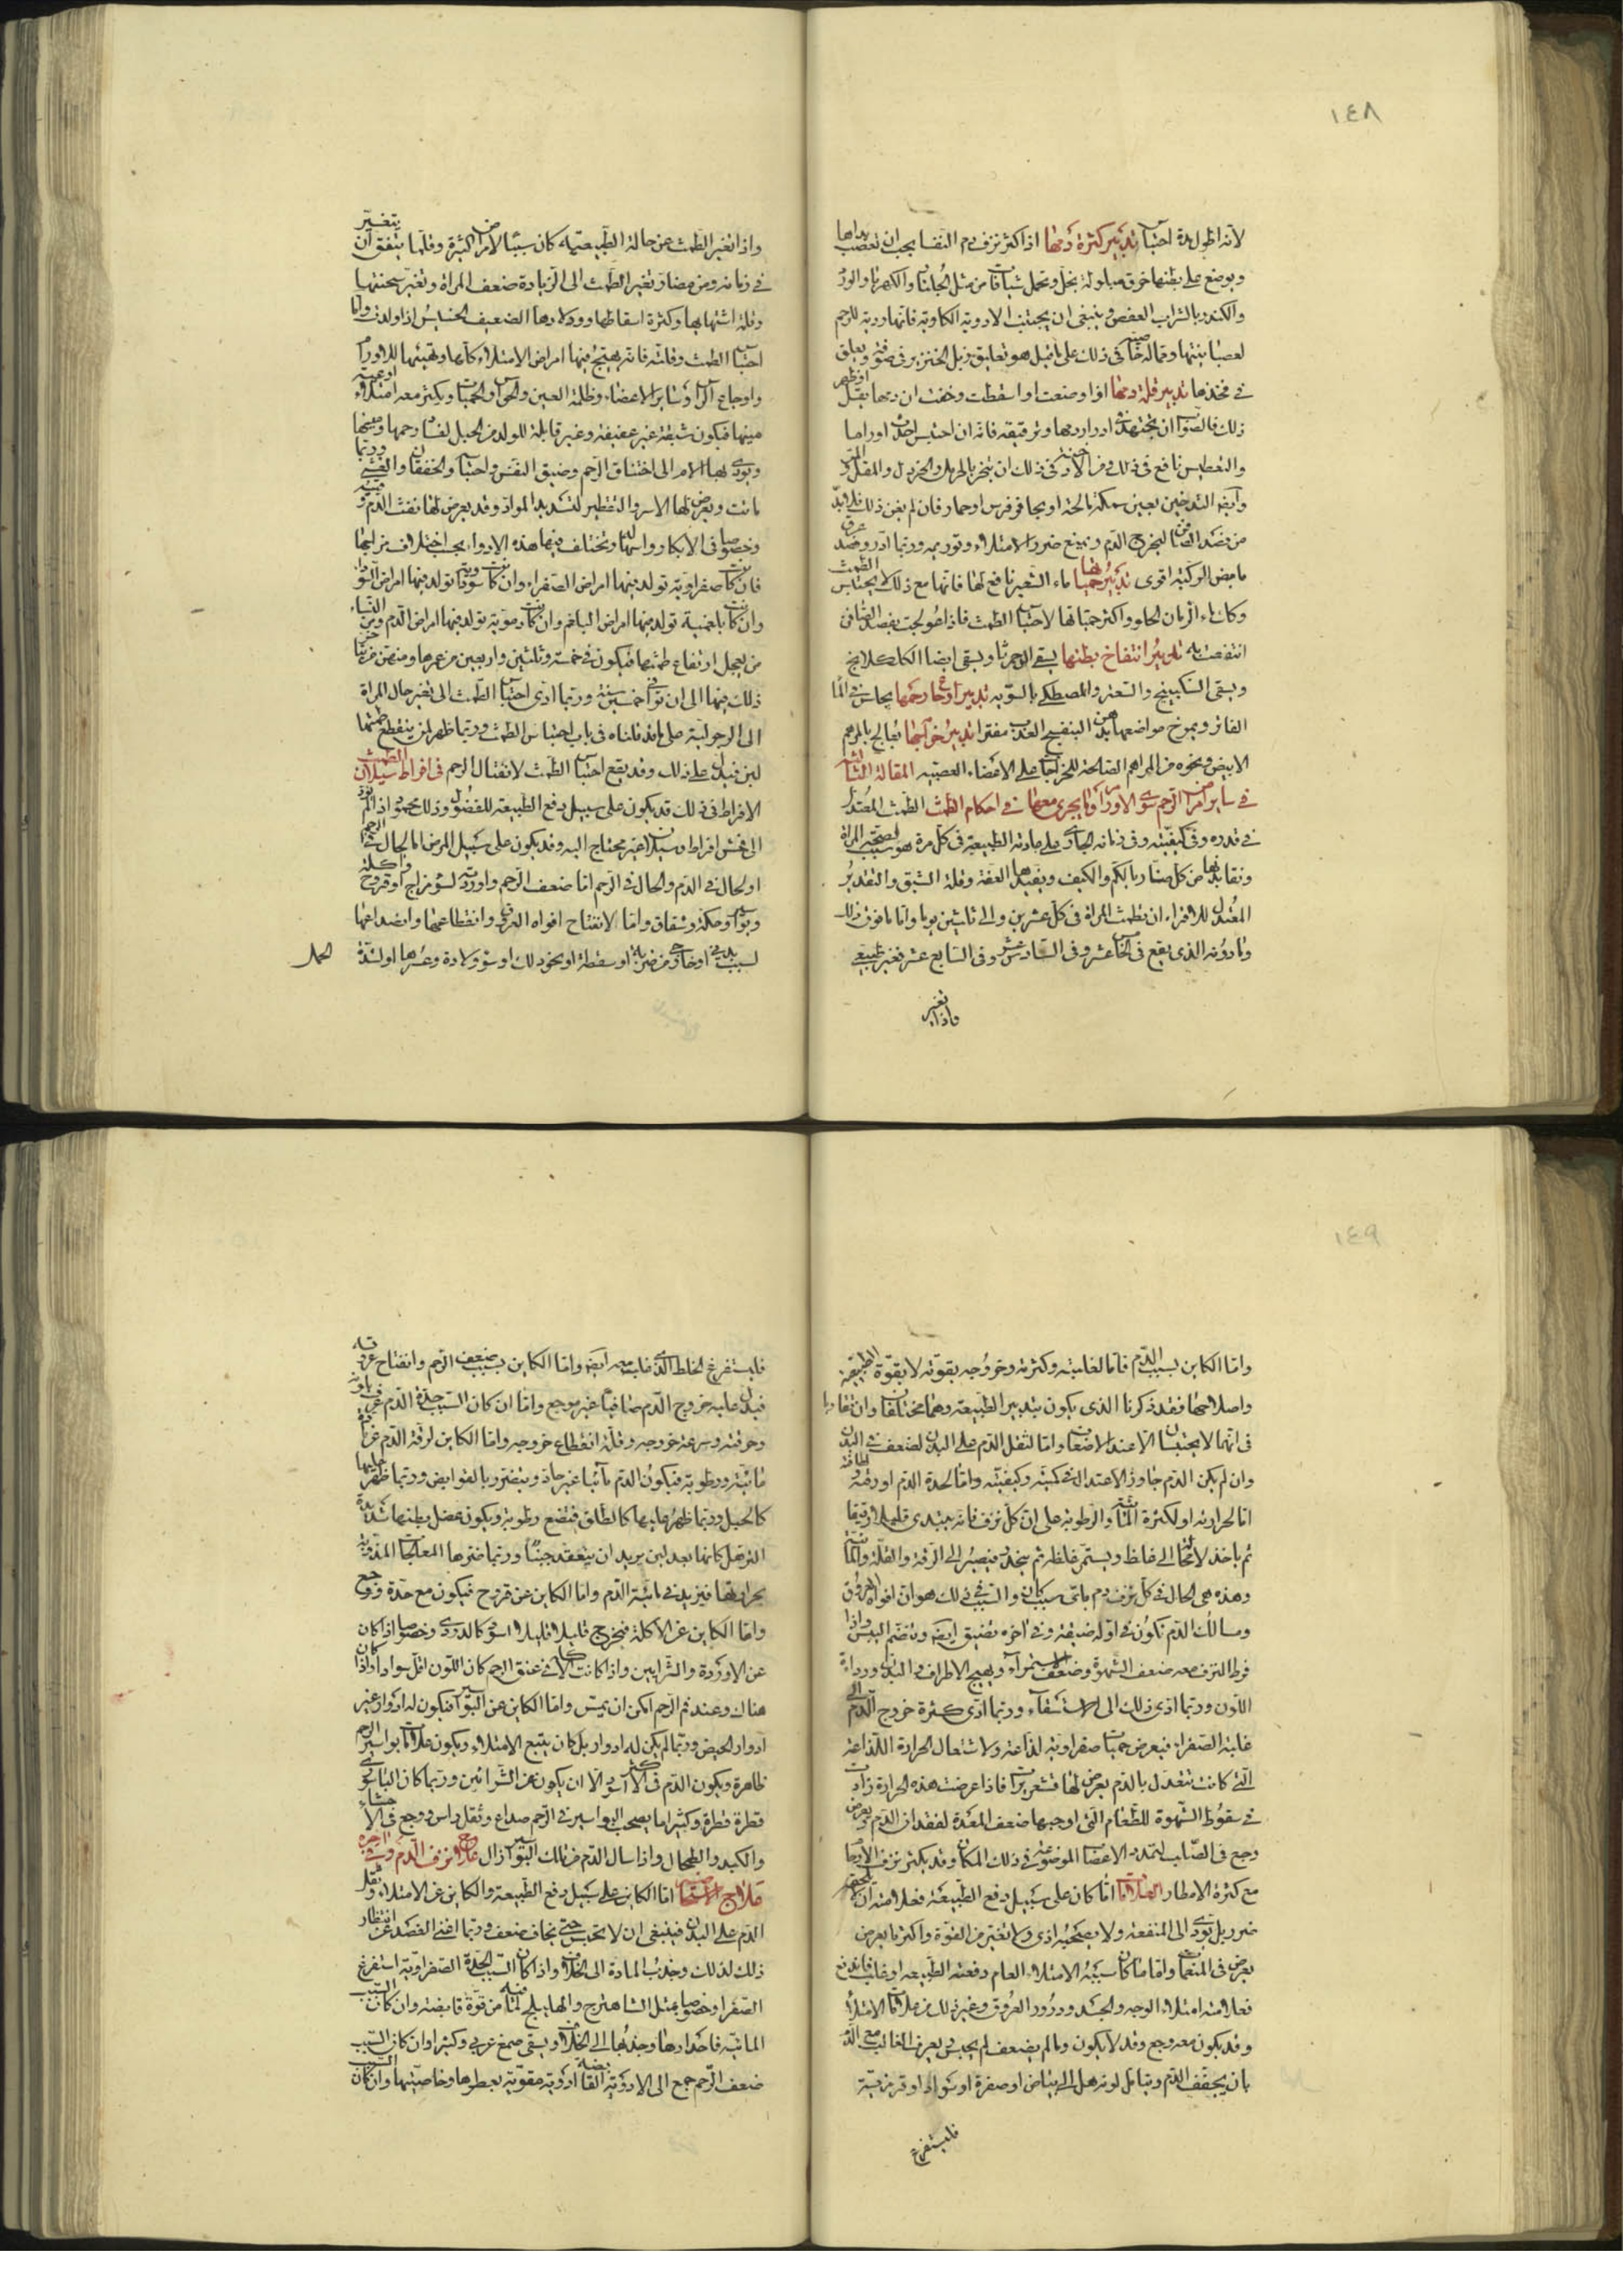 ١٤٨
لانه اطول مدة احتباسا تدبير كثرة دمها اذا كثر نزف دم النفسا يجب ان تعصب يداها
ويوضع على بطنها خرق مبلولة بخل وتحمل شيافات من مثل الجلنار والكهربا والورد
والكندر بالشراب العفص وينبغى ان يجتنب الادوية الكاوية فانها ردية للرحم
لعصبانيتها ومما له خاصية فى ذلك على ما قيل هو تعليق زبل الخنزير فى صوفة ويعلق
فى فخذها تدبير قلة دمها اذا وضعت او اسقطت وخفت ان دمها يقل او ظهر
ذلك فالصواب ان يجتهد فى ادرار دمها وترقيقه فانه ان احتبس احدث اوراما
والتعطيس نافع فى ذلك ومن الادخنة فى ذلك ان يبخر بالحرمل والخردل والمقل والمر
وايضا التدخين بعين سمكة مالحة او بحافر فرس او حمار فان لم يغن ذلك فلا بد
من فصد الصافن ليخرج الدم ويمنع ضرر الامتلاء وتوريمه وربما ادر وفصد عرق
مابض الركبة اقوى تدبير حمياتها ماء الشعير نافع لها فانها مع ذلك لا يحتبس الطمث
وكذلك ماء الرمان الحلو واكثر حمياتها لاحتباس الطمث فاذا عولجت بفصد الصافن
انتفعت به تدبير انتفاخ بطنها يسقى الدحمرثا ويسقى ايضا الكلكلانج
ويسقى السكبينج والسعتر والمصطكى بالسوية تدبير اوجاع رحمها يجلس فى الماء
الفاتر ويمرخ مواضعها بدهن البنفسج العذب مفترا تدبير خراجها فيعالج بالمرهم
الابيض ونحوه من المراهم الصالحة للخراجات على الاعضاء العصبية المقالة الثالثة
فى ساير امراض الرحم سوى الاورام وما يجرى معها فى احكام الطمث الطمث المعتدل
فى قدره وفى كيفيته وفى زمانه الجارى على عادته الطبيعية فى كل مرة هو سبب لصحة المراة
ونقاء بدنها من كل ضار بالكم والكيف ويفيدها العفة وقلة الشبق والتقدير
المعتدل للاقراء ان تطمث المراة فى كل عشرين والى ثلثين يوما واما ما فوق ذلك
وما دونه الذى يقع فى الخامس عشر وفى السادس عشر وفى السابع عشر فغير طبيعى
واذا تغير
واذا تغير الطمث عن حالة الطبيعية كان سببا لامراض كثيرة وقلما يتفق ان يتغير
فى زمانه ومن مضار تغير الطمث الى الزيادة ضعف المراة وتغير سحنتها
وقلة اشتهايها وكثرة اسقاطها وولادها الضعيف الخسيس اذا ولدت واما
احتباس الطمث وقلته فانه يهيج فيها امراض الامتلاء كلها ويهيئها للاورام
واوجاع الراس وساير الاعضاء وظلمة العين والحواس والحميات ويكثر معه امتلاء اوعية
منيها فيكون شبقة غير عفيفة وغير قابلة للولد من الحبل لفساد رحمها ومنيها
ويودى بها الامر الى اختناق الرحم وضيق النفس واحتباسه والخفقان والغشى وربما
ماتت ويعرض لها الاسر والتقطير لتسديد المواد وقد يعرض لها نفث الدم وقيئه
وخصوصا فى الابكار واسهاله وتختلف فيها هذه الادواء بحسب اختلاف مزاجها
فان كانت صفراوية تولد فيها امراض الصفراء وان كانت سوداوية تولد فيها امراض السوداء
وان كانت بلغمية تولد فيها امراض البلغم وان كانت دموية تولد فيها امراض الدم ومن النساء
من يعجل ارتفاع طمثها فيكون فى خمسة وثلثين واربعين من عمرها ومنهن من يتاخر
ذلك فيها الى ان توافى خمسين سنة وربما ادى احتباس الطمث الى تغير حال المراة
الى الرجولية على ما قد قلناه فى باب احتباس الطمث وربما ظهر لمن ينقطع طمثها
لبن فيدل على ذلك وقد يقع احتباس الطمث لانقتال الرحم فى افراط سيلان الطمث
الافراط فى ذلك قد يكون على سبيل دفع الطبيعة للفضول وذلك محمود اذا لم يود
الى فحش افراط وسيلان غير محتاج اليه وقد يكون على سبيل المرض اما لحال فى الرحم
او لحال فى الدم والحال فى الرحم اما ضعف الرحم واوردته لسوء مزاج او قروح واكلة
وبواسير وحكة وشقاق واما لانفتاح افواه العروق وانقطاعها وانصداعها
لسبب بدنى او خارجى من ضربة او سقطة او نحو ذلك او سوء ولادة وعسرها او لشدة الحمل
١٤٩
واما الكاين بسبب الدم فاما لغلبته وكثرته وخروجه بقوته لا بقوة الطبيعة
واصلاحها فقد ذكرنا الذى يكون بتدبير الطبيعة وهما مختلفان وان تقاربا
فى انهما لا يحتبسان الا عند الاضعاف واما لثقل الدم على البدن لضعف فى البدن
وان لم يكن الدم جاوز الاعتدال فى كميته وكيفيته واما لحدة الدم او رقته ولطافته
اما لحرارته او لكثرة المائية والرطوبة على ان كل نزف فانه يبتدى قليلا رقيقا
ثم ياخذ لا محالة الى غلظ ويستمر غلظه ثم ينحدر فيصير الى الرقة والقلة والمائية
وهذه هى الحال فى كل نزف دم باى سبب كان والسبب فى ذلك هو ان افواه العروق
ومسالك الدم تكون فى اوله ضيقة وفى اخره تضيق ايضا وتنضم اليبس واذا
فرط النزف تبعه ضعف الشهوة وضعف الاستمراء وتهيج الاطراف والبدن ورداءة
اللون وربما ادى ذلك الى الاستسقاء وربما ادى كثرة خروج الدم الى
غلبة الصفراء فيعرض حميات صفراوية لذاعة ولاشتعال الحرارة اللذاعة
التى كانت تتعدل بالدم يعرض لها قشعريرات فاذا عرضت هذه الحرارة زادت
فى سقوط الشهوة للطعام التى اوجبها ضعف المعدة لفقدان الدم ويعرض
وجع فى الصلب لتمدد الاعضاء الموضوعة فى ذلك المكان وقد يكثر نزف الارحام
مع كثرة الامطار العلامات اما كان على سبيل دفع الطبيعة فعلامته ان لا يلحقه
ضرر بل يودى الى المنفعة ولا يصحبه اذى ولا يتغير من القوة واكثر ما يعرض
يعرض فى المنعمات واما ما كان سببه الامتلاء العام دفعته الطبيعة او غلب فاندفع
فعلامته امتلاء الوجه والجسد ودرور العروق وغير ذلك من علامات الامتلاء
وقد يكون معه وجع وقد لا يكون وما لم يضعف لم يحبس يعرف الغالب مع الدم
بان يجفف الدم ويتامل لونه هل الى بياض او صفرة او سواد او قرمزية
فليستفرغ
فليستفرغ الخلط الذى غلب معه ايضا واما الكاين بسبب ضعف الرحم وانفتاح عروقه
فيدل عليه خروج الدم صافيا غير موجع واما ان كان السبب حدة الدم عرف بلونه
وحرقته وسرعة خروجه وقلة انقطاع خروجه واما الكاين لرقة الدم عن مادة
مائية ورطوبة فيكون الدم مائيا غير حاد ويتضرر بالقوابض وربما ظهر عليها
كالحبل وربما ظهر عليها كالطلق فتضع رطوبة ويكون عضل بطنها شديدة
الترهل كانها بعد لبن يريد ان ينعقد جبنا وربما ضرها المعالجات المدرية
بحرارتها فيزيد فى مائية الدم واما الكاين عن قروح فيكون مع حدة ووجع
واما الكاين عن الاكلة فيخرج قليلا قليلا اسود كالدردى وخصوصا اذا كان
عن الاوردة والشرايين واذا كانت الاكلة فى عنق الرحم كان اللون اقل سوادا واذا كان
هناك وعند فم الرحم امكن ان يمس واما الكاين عن البواسير فيكون له ادوار غير
ادوار الحيض وربما لم يكن له ادوار بل كان يتبع الامتلاء ويكون علامات بواسير الرحم
ظاهرة ويكون الدم فى الاكثر اسود الا ان يكون من الشرائين وربما كان الباسورى
قطرة قطرة وكثيرا ما يصحب البواسير فى الرحم صداع وثقل راس ووجع فى الاحشاء
والكبد والطحال واذا سال الدم من ذلك البواسير زال علاج نزف الدم وغيره
علاج الاستحاضة اما الكاين على سبيل دفع الطبيعة والكاين عن الامتلاء وثقل
الدم على البدن فينبغى ان لا تحبس حتى يخاف ضعف وربما اغنى الفصد عن انتظار
ذلك لذلك وجذب المادة الى الخلاف واذا كان السبب الحدة الصفراوية استفرغ
الصفرا وخصوصا بمثل الشاهترج والهليلج لما فيه من قوة قابضة وان كان السبب
المائية فاحدارها وجذبها الى الخلاف ويسقى صمغ عربى وكثيرا وان كان السبب
ضعف الرحم جمع الى الادوية القابضة ادوية مقوية بعطرها وخاصيتها وان كان السبب